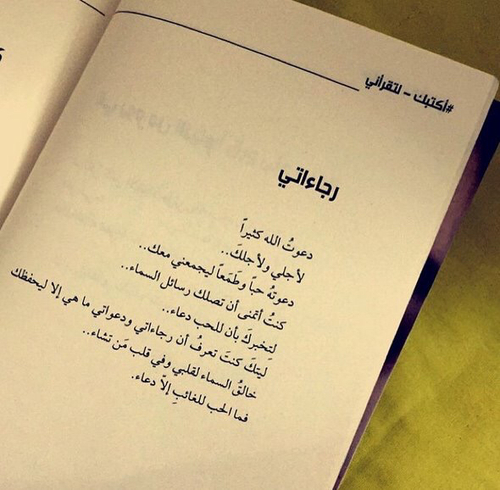 #أكتبك - لتقرأني
رجاءاتي
دعوتُ الله كثيراً
لأجلي ولأجلكَ..
دعوتهُ حبّاً وطَمَعاً ليجمعني معك..
كنتُ أتمنى أن تصلك رسائل السماء..
لتخبركَ بأن للحب دعاء..
لَيتكَ كنتَ تعرفُ أن رجاءاتي ودعواتي ما هي إلا ليحفظك
خالقُ السماء لقلبي وفي قلب مَن تشاء..
فما الحب للغائبِ إلاّ دعاء.